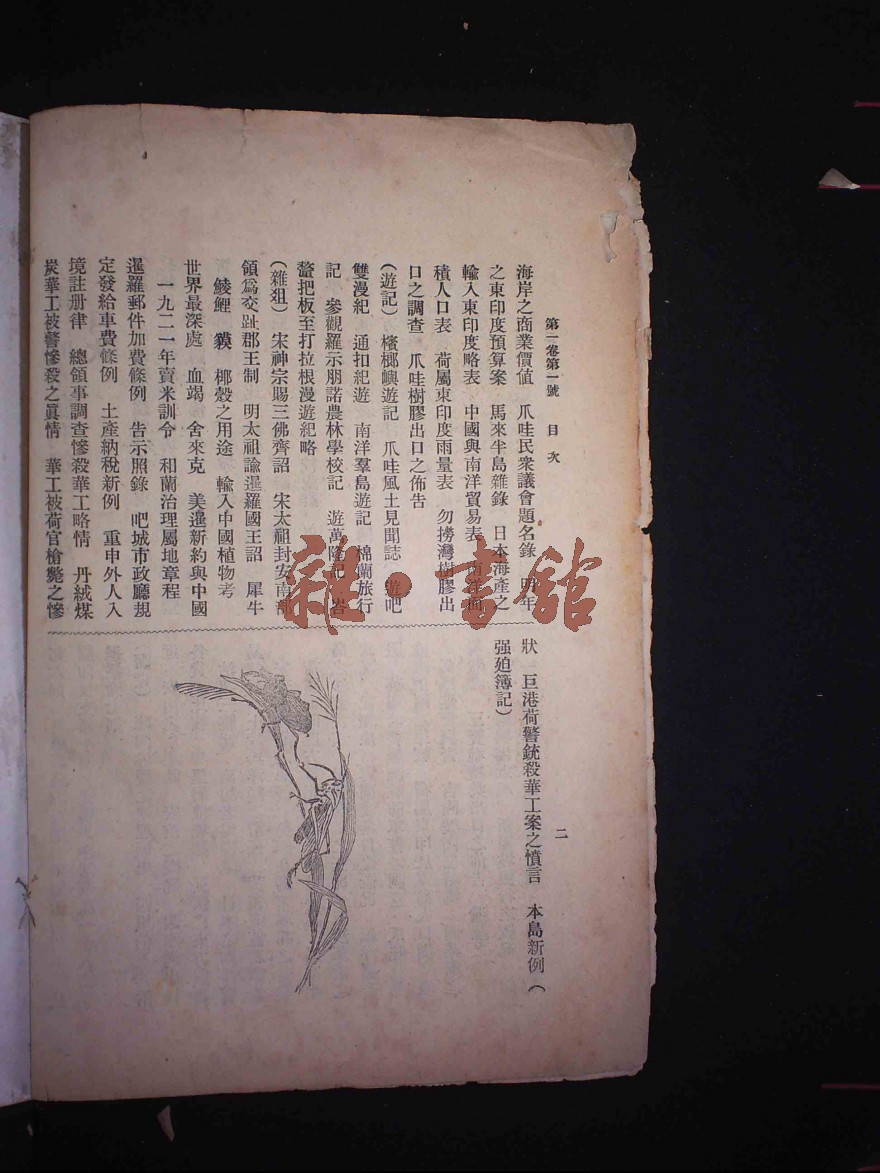 第一卷第一號 目次
二
海岸之商業價值 爪哇民衆議會題名錄 年
之東印度預算案 馬來半島雜錄 日本海產之
輸入東印度略表 中國與南洋貿易表 南洋面
積人口表 荷屬東印度雨量表 勿撈灣樹膠出
口之調查 爪哇樹膠出口之佈告
(遊記) 檳榔嶼遊記 爪哇風土見聞誌 遊吧
雙漫紀 通扣紀遊 南洋羣島遊記 棉蘭旅行
記 參觀羅示朋諾農林學校記 遊萬隆記 峇
釐把板至打拉根漫遊紀略
(雜俎) 宋神宗賜三佛齊詔 宋太祖封安南部
領爲交趾郡王制 明太祖諭暹羅國王詔 犀牛
鯪鯉 貘 椰殼之用途 輸入中國植物考
世界最深處 血竭 舍來克 美暹新約與中國
一九二一年賣米訓令 和蘭治理屬地章程
暹羅郵件加費條例 告示照錄 吧城市政廳規
定發給車費條例 土產納稅新例 重申外人入
境註册律 總領事調查慘殺華工略情 丹絨煤
炭華工被警慘殺之眞情 華工被荷官槍斃之慘
狀 巨港荷警銃殺華工案之憤言 本島新例 (
强廹簿記)
雜·書館